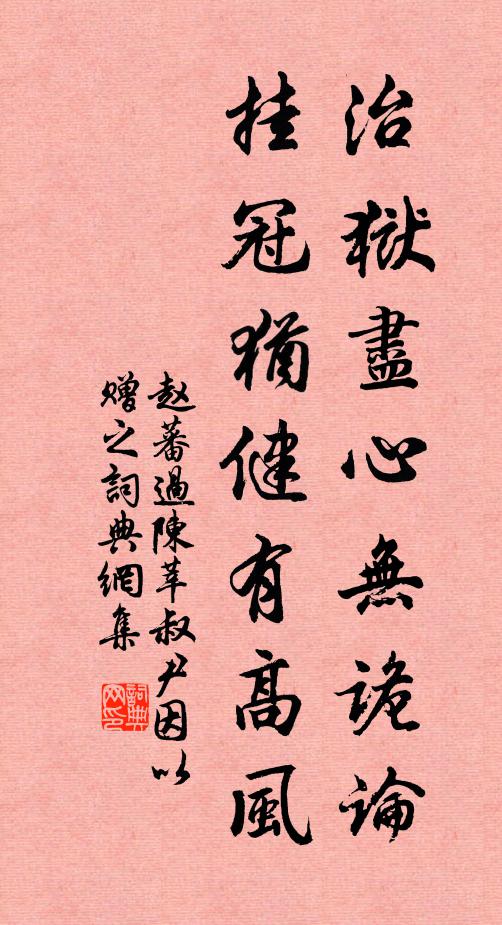 治獄盡心無詭論
挂冠猶健有高風
赵蕃過陳莘叔尹因以
赠之詞典網集
詞典
网印